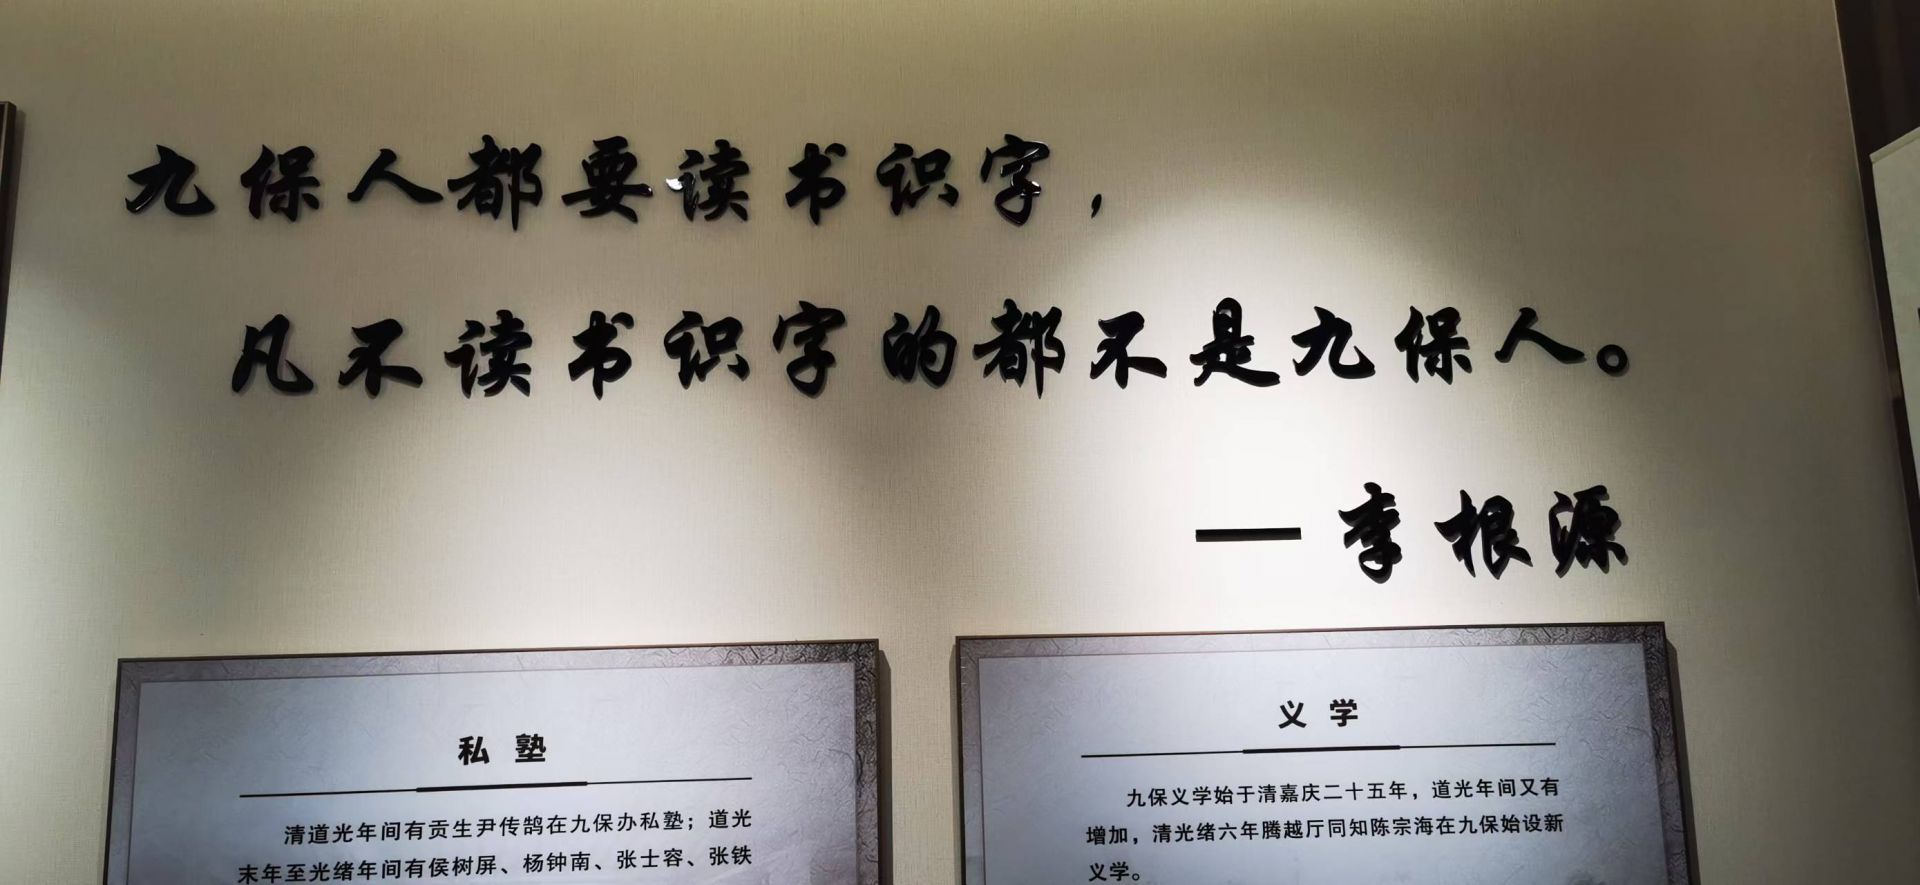 九保人都要读书识字，
凡不读书识字的都不是九保人。
—李根源
私塾
清道光年间有贡生尹传鹄在九保办私塾；道光
末年至光绪年间有侯树屏、杨钟南、张士容、张铁
义学
九保义学始于清嘉庆二十五年，道光年间又有
增加，清光绪六年腾越厅同知陈宗海在九保始设新
义学。